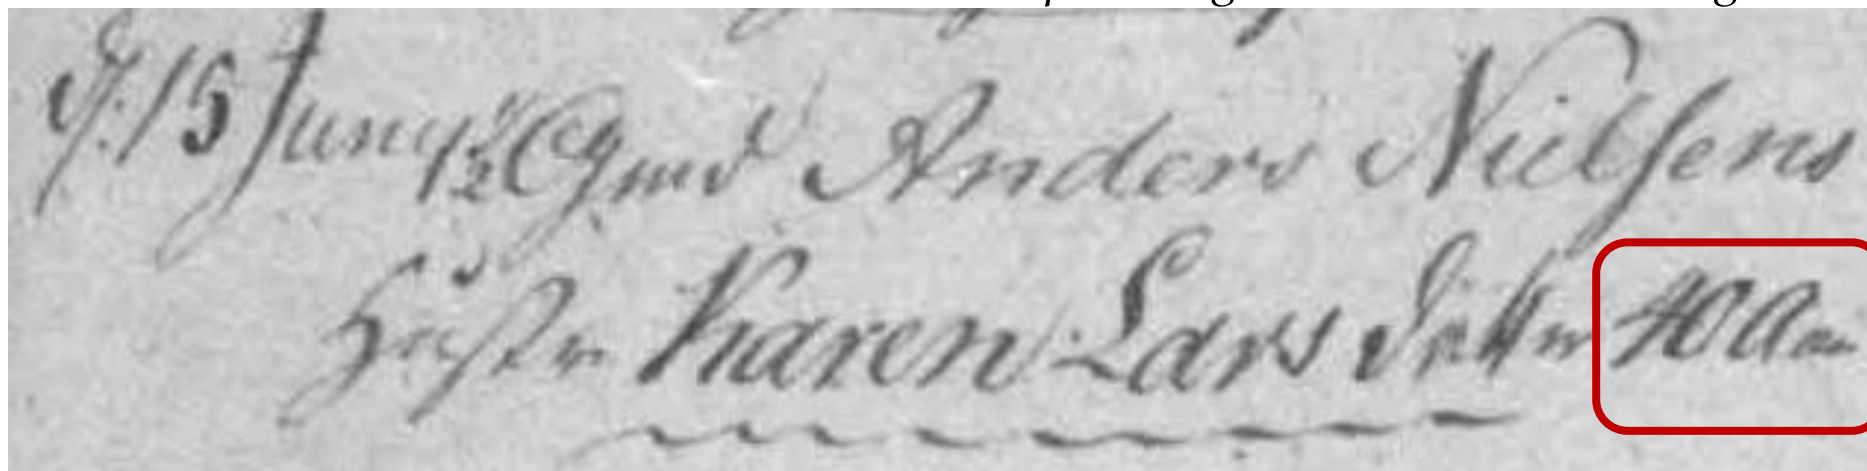 d: 15 Juny Gmd Anders Nielsens
Hustr Karen Lars Datter 40 Aar